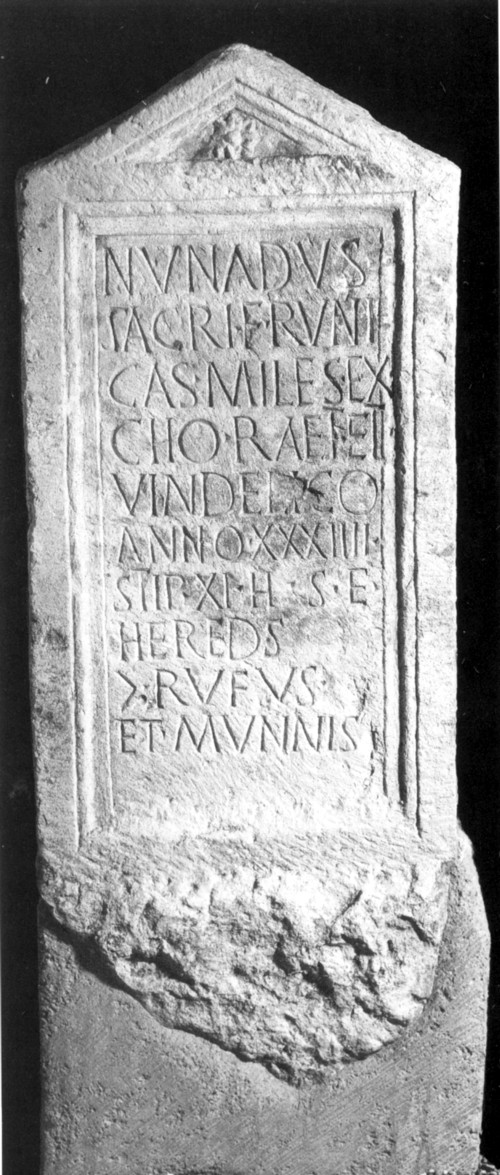 NVNADVS
SACRIF·RVNI
CAS·MILES·EX
CHO·RAET·ET
VINDELICO
ANNO·XXXIIII·
STIP·XI·H·S·E·
HEREDS
>·RVFVS
ET·MVNNIS